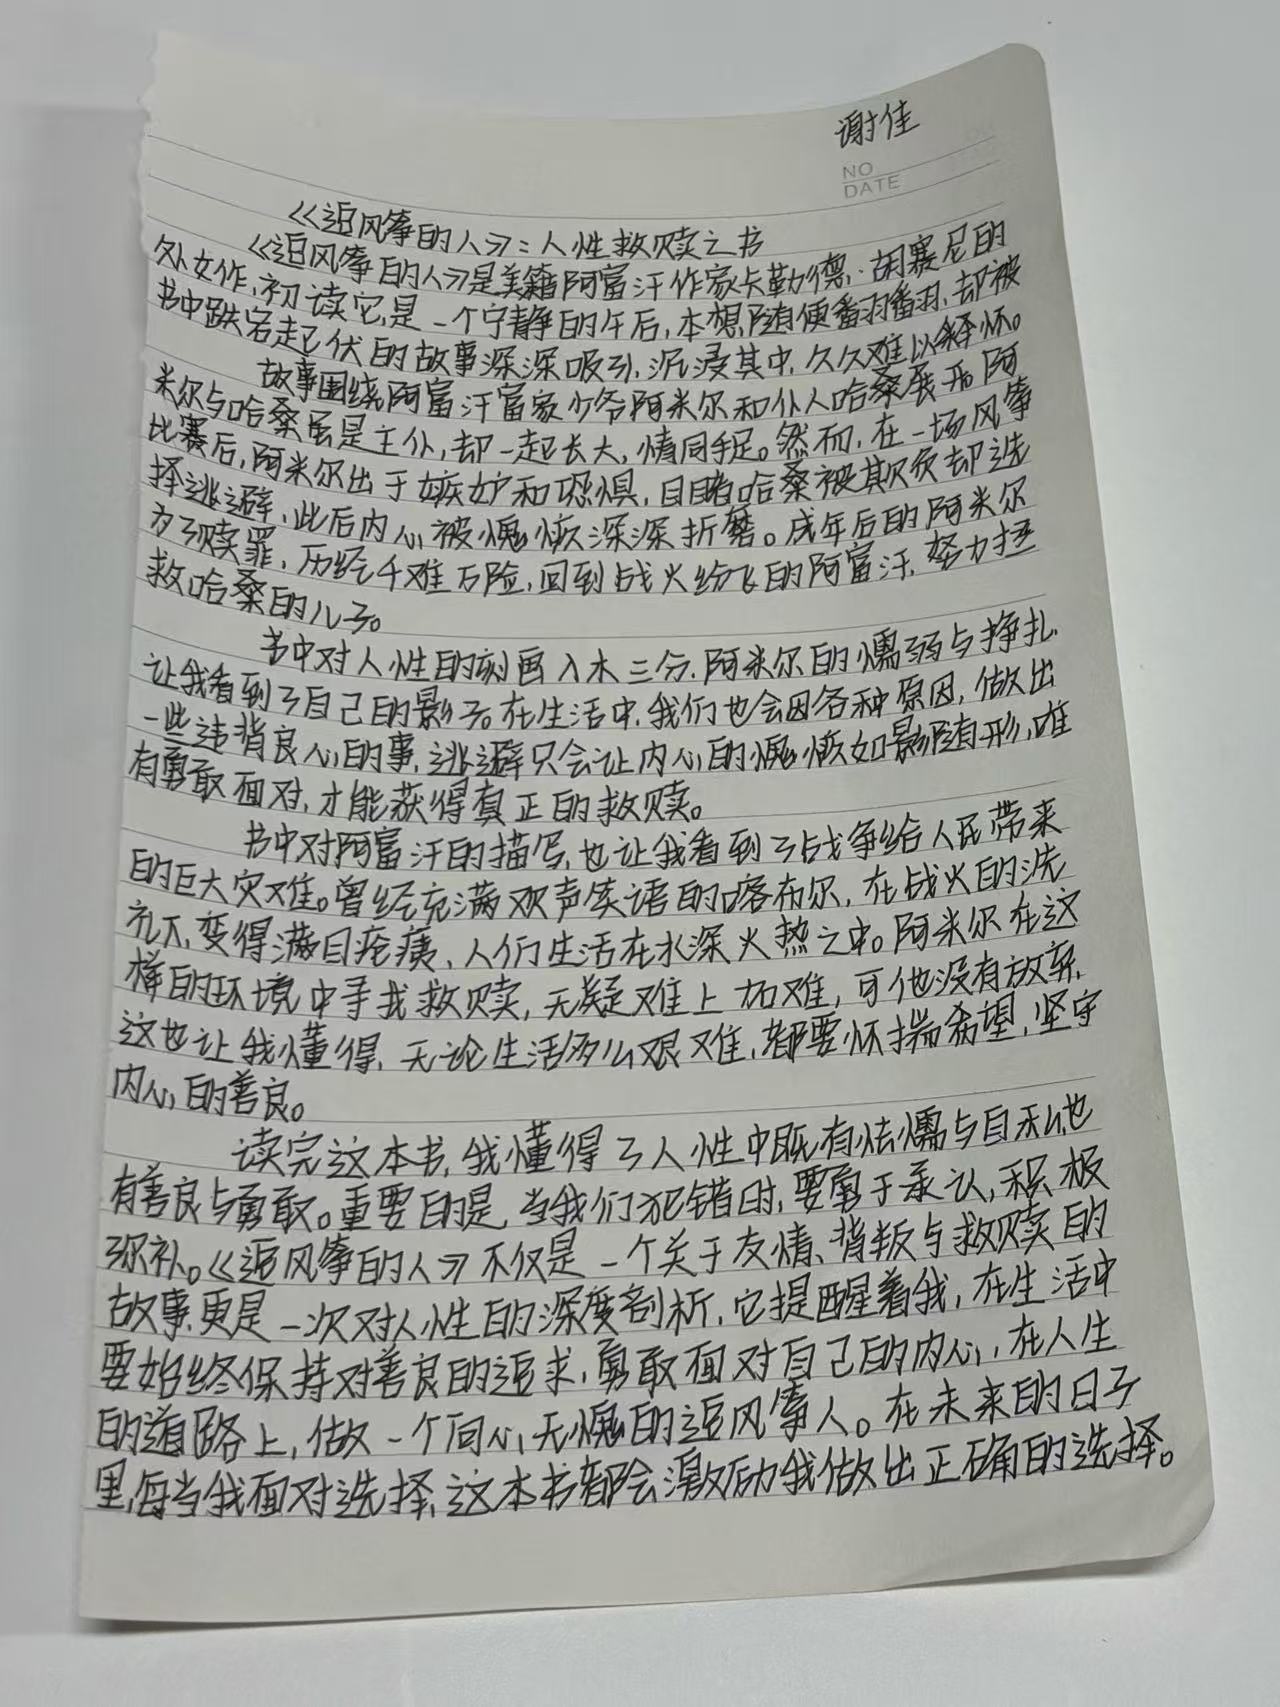 谢佳
NO
DATE
《追风筝的人》:人性救赎之书
《追风筝的人》是美籍阿富汗作家卡勒德·胡赛尼的
处女作,初读它,是一个宁静的午后,本想随便翻翻,却被
书中跌宕起伏的故事深深吸引,沉浸其中,久久难以释怀。
故事围绕阿富汗富家少爷阿米尔和仆人哈桑展开。阿
米尔与哈桑虽是主仆,却一起长大,情同手足。然而,在一场风筝
比赛后,阿米尔出于嫉妒和恐惧,目睹哈桑被欺负却选
择逃避,此后内心被愧疚深深折磨。成年后的阿米尔
为了赎罪,历经千难万险,回到战火纷飞的阿富汗,努力拯
救哈桑的儿子。
书中对人性的刻画入木三分,阿米尔的懦弱与挣扎,
让我看到了自己的影子。在生活中,我们也会因各种原因,做出
一些违背良心的事,逃避只会让内心的愧疚如影随形,唯
有勇敢面对,才能获得真正的救赎。
书中对阿富汗的描写,也让我看到了战争给人民带来
的巨大灾难。曾经充满欢声笑语的喀布尔,在战火的洗
礼下,变得满目疮痍,人们生活在水深火热之中。阿米尔在这
样的环境中寻找救赎,无疑难上加难,可他没有放弃,
这也让我懂得,无论生活多么艰难,都要怀揣希望,坚守
内心的善良。
读完这本书,我懂得了人性中既有怯懦与自私,也
有善良与勇敢。重要的是,当我们犯错时,要勇于承认,积极
弥补。《追风筝的人》不仅是一个关于友情、背叛与救赎的
故事,更是一次对人性的深度剖析,它提醒着我,在生活中
要始终保持对善良的追求,勇敢面对自己的内心,在人生
的道路上,做一个问心无愧的追风筝人。在未来的日子
里,每当我面对选择,这本书都会激励我做出正确的选择。